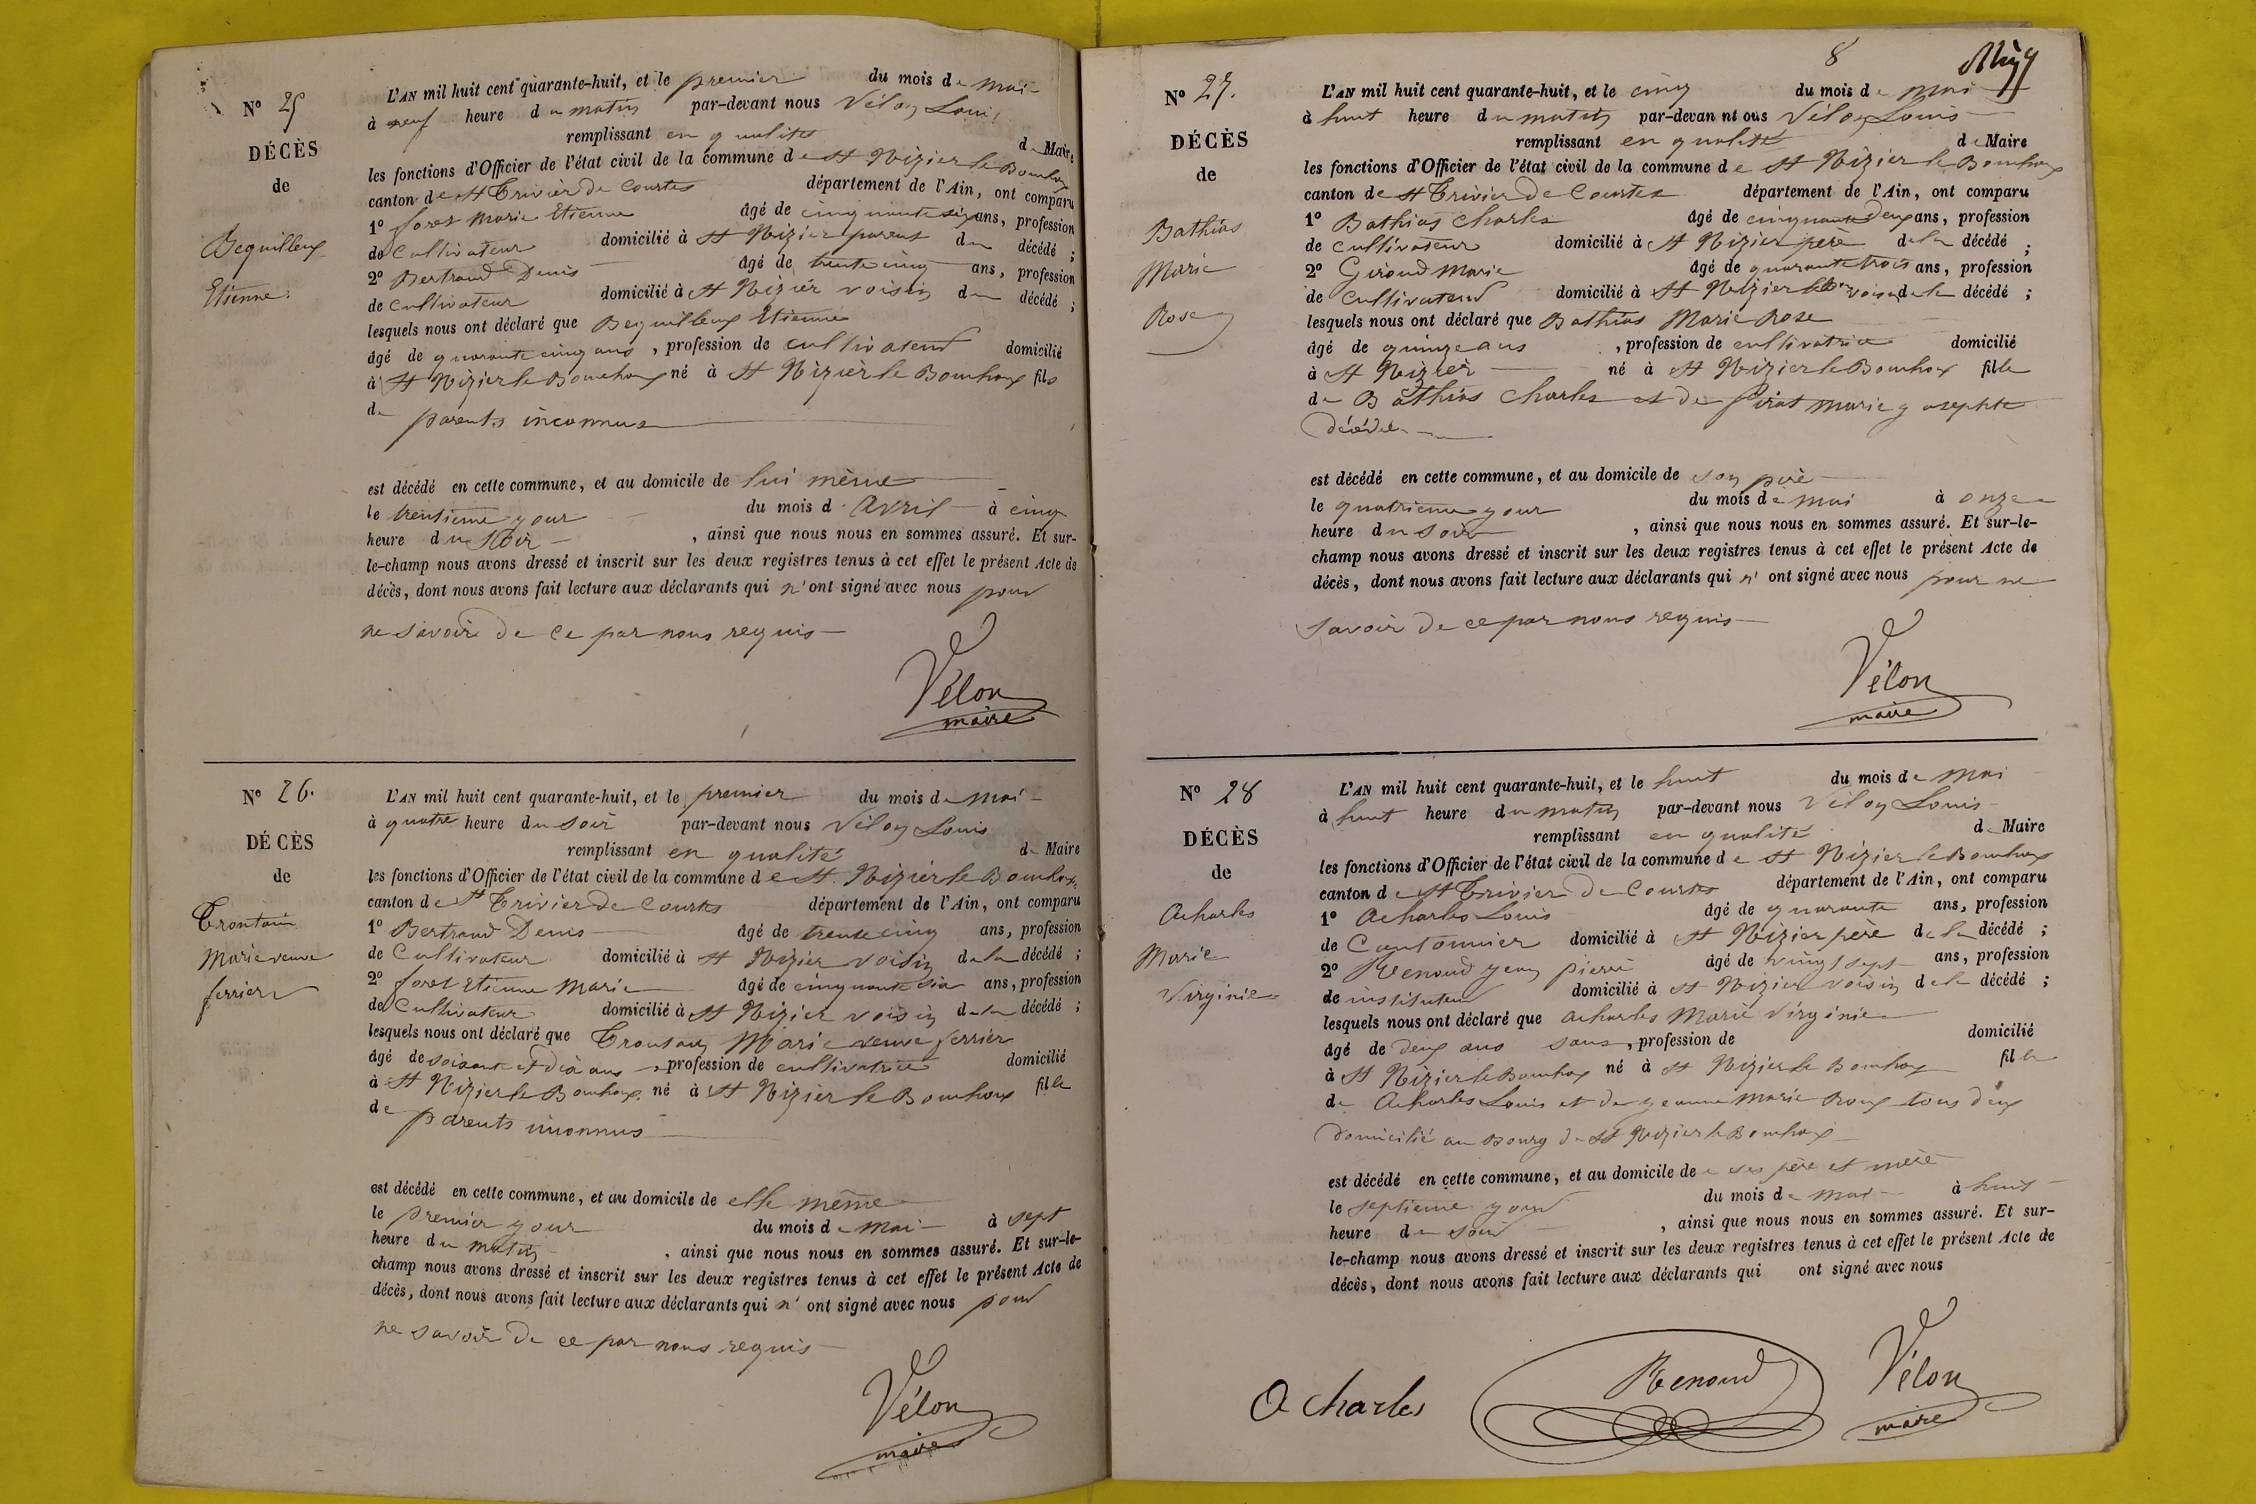 N° 25
DÉCÈS
de
Bequilleux
Etienne.
L'AN mil huit cent quarante-huit, et le premier du mois de mai
à neuf heure du matin par-devant nous Vélon Louis
remplissant en qualité de Maire
les fonctions d'Officier de l'état civil de la commune de St Nizier le Bouchoux
canton de St Trivier de Courtes département de l'Ain, ont comparu
1° foret Marie Etienne âgé de cinquante six ans, profession
de Cultivateur domicilié à St Nizier parent du décédé ;
2° Bertrand Denis âgé de trente cinq ans, profession
de cultivateur domicilié à St Nizier voisin du décédé ;
lesquels nous ont déclaré que Bequilleux Etienne
âgé de quarante cinq ans , profession de cultivateur domicilié
à St Nizier le Bouchoux né à St Nizier le Bouchoux fils
de parents inconnus
est décédé en cette commune, et au domicile de lui même
le trentieme jour du mois d'Avril à cinq
heure du soir , ainsi que nous nous en sommes assuré. Et sur-
le-champ nous avons dressé et inscrit sur les deux registres tenus à cet effet le présent Acte de
décès, dont nous avons fait lecture aux déclarants qui n'ont signé avec nous pour
ne savoir de ce par nous requis
Vélon
maire
N° 26.
DÉCÈS
de
Marie veuve
ferrier
L'AN mil huit cent quarante-huit, et le premier du mois de mai
à quatre heure du soir par-devant nous Vélon Louis
remplissant en qualité de Maire
les fonctions d'Officier de l'état civil de la commune de St Nizier le Bouchoux
canton de St Trivier de Courtes département de l'Ain, ont comparu
1° Bertrand Denis âgé de trente cinq ans, profession
de Cultivateur domicilié à St Nizier voisin de la décédé ;
2° foret Etienne Marie âgé de cinquante six ans, profession
de Cultivateur domicilié à St Nizier voisin de la décédé ;
lesquels nous ont déclaré que Marie veuve ferrier
âgé de soisante et dix ans , profession de cultivatrice domicilié
à St Nizier le Bouchoux né à St Nizier le Bouchoux fille
de parents inconnus
est décédé en cette commune, et au domicile de elle même
le premier jour du mois de mai à sept
heure du matin , ainsi que nous nous en sommes assuré. Et sur-le-
champ nous avons dressé et inscrit sur les deux registres tenus à cet effet le présent Acte de
décès, dont nous avons fait lecture aux déclarants qui n'ont signé avec nous pour
ne savoir de ce par nous requis
Vélon
maire
8
N° 27.
DÉCÈS
de
Bathias
Marie
Rose
L'AN mil huit cent quarante-huit, et le cinq du mois de mai
à huit heure du matin par-devan nt ous Vélon Louis
remplissant en qualité de Maire
les fonctions d'Officier de l'état civil de la commune de St Nizier le Bouchoux
canton de St Trivier de Courtes département de l'Ain, ont comparu
1° Bathias Charles âgé de cinquante deux ans, profession
de cultivateur domicilié à St Nizier père de la décédé ;
2° Giroud Marie âgé de quarante trois ans, profession
de Cultivateur domicilié à St Nizier voisin de la décédé ;
lesquels nous ont déclaré que Bathias Marie Rose
âgé de quinze ans , profession de cultivatrice domicilié
à St Nizier né à St Nizier le Bouchoux fille
de Bathias Charles et de Marie josephte
décédée
est décédé en cette commune, et au domicile de son père
le quatrieme jour du mois de mai à onze
heure du soir , ainsi que nous nous en sommes assuré. Et sur-le-
champ nous avons dressé et inscrit sur les deux registres tenus à cet effet le présent Acte de
décès, dont nous avons fait lecture aux déclarants qui n'ont signé avec nous pour ne
savoir de ce par nous requis
Vélon
maire
N° 28
DÉCÈS
de
Acharles
Marie
Virginie
L'AN mil huit cent quarante-huit, et le huit du mois de Mai
à huit heure du matin par-devant nous Vélon Louis
remplissant en qualité de Maire
les fonctions d'Officier de l'état civil de la commune de St Nizier le Bouchoux
canton de St Trivier de Courtes département de l'Ain, ont comparu
1° Acharles Louis âgé de quarante ans, profession
de Cantonnier domicilié à St Nizier père de la décédé ;
2° Renoud jean pierre âgé de vingt sept ans, profession
de instituteur domicilié à St Nizier voisin de la décédé ;
lesquels nous ont déclaré que Acharles Marie Virginie
âgé de deux ans sans , profession de domicilié
à St Nizier le Bouchoux né à St Nizier le Bouchoux fille
de Acharles Louis et de jeanne Marie Roux tous deux
domicilié au Bourg de St Nizier le Bouchoux
est décédé en cette commune, et au domicile de ses père et mère
le septieme jour du mois de mai à huit
heure du soir , ainsi que nous nous en sommes assuré. Et sur-
le-champ nous avons dressé et inscrit sur les deux registres tenus à cet effet le présent Acte de
décès, dont nous avons fait lecture aux déclarants qui ont signé avec nous
Acharles Renoud Vélon
maire